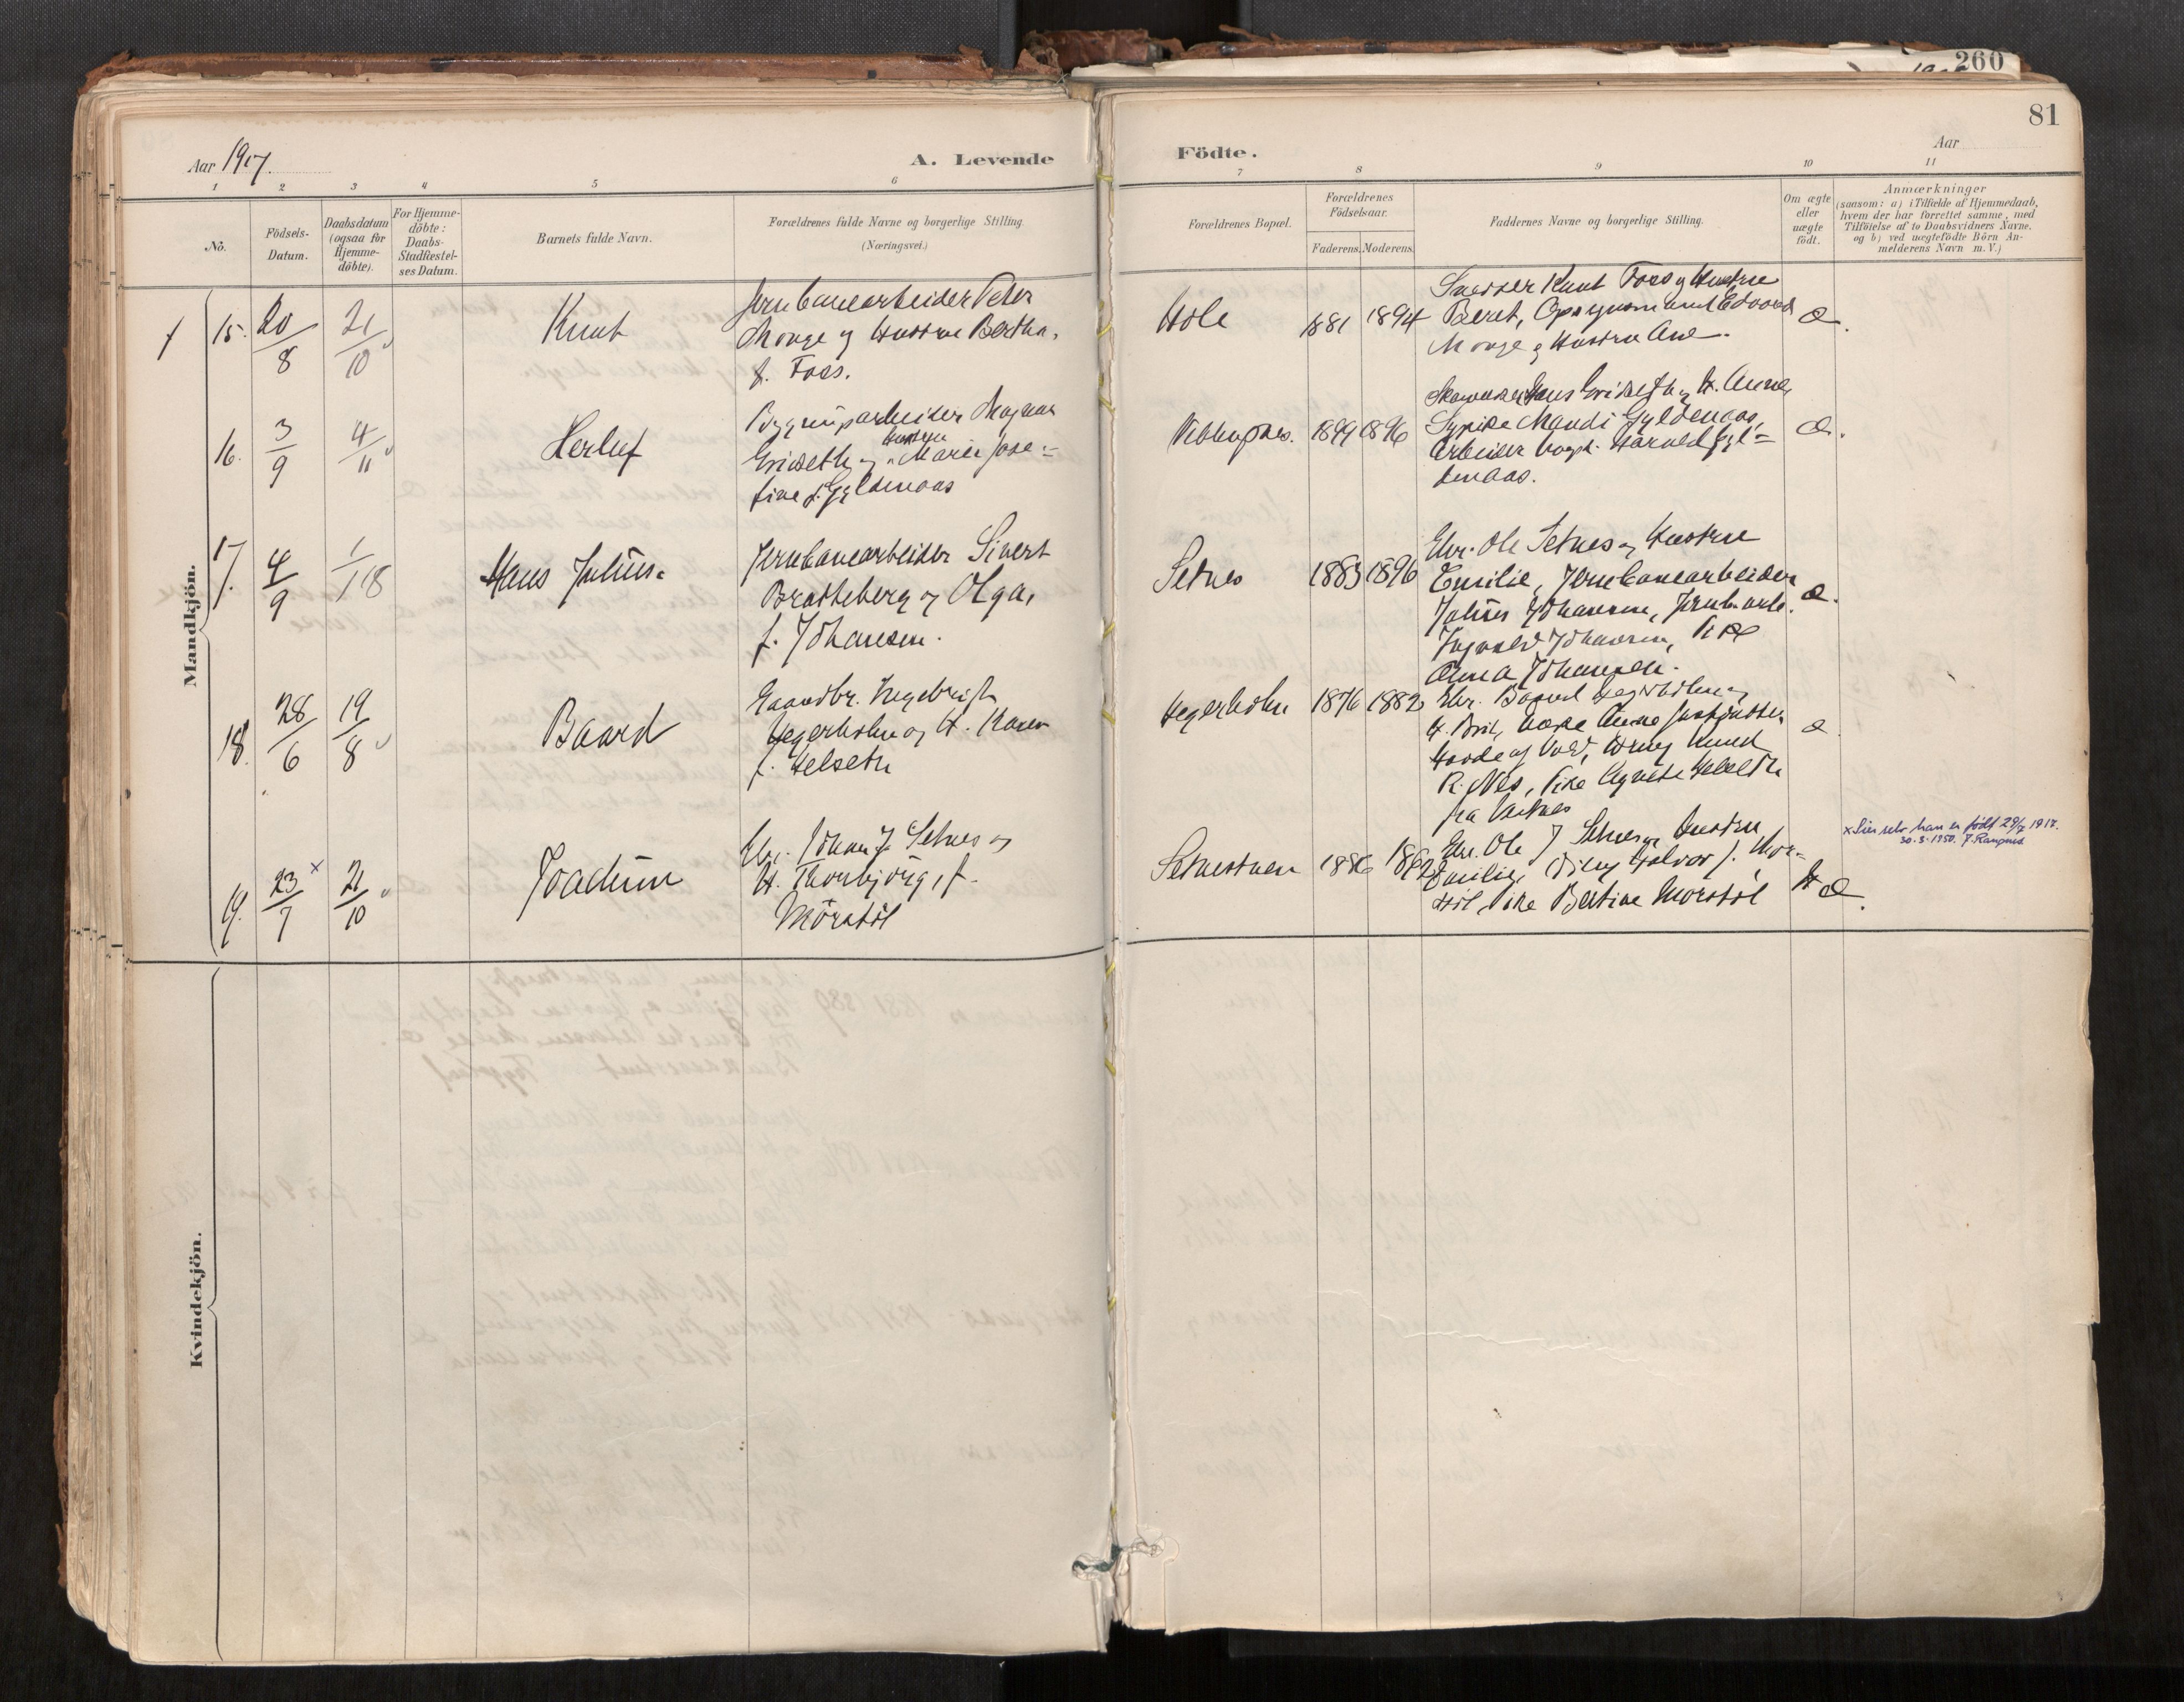 260
81
Aar 1917.
A. Levende
Födte.
Aar
1
2
3
4
5
6
7
8
9
10
11
No.
Födsels-
Datum.
Daabsdatum
(ogsaa for
Hjemme-
döbte).
For Hjemme-
döbte:
Daabs-
Stadfæstel-
ses Datum.
Barnets fulde Navn.
Forældrenes fulde Navne og borgerlige Stilling.
(Næringsvei.)
Forældrenes Bopæl.
Forældrenes
Födselsaar.
Faderens.
Moderens.
Faddernes Navne og borgerlige Stilling.
Om ægte
eller
uægte
födt.
Anmærkninger
(saasom: a) i Tilfælde af Hjemmedaab,
hvem der har forrettet samme, med
Tilföielse af to Daabsvidners Navne.
og b) ved uægtefödte Börn An-
melderens Navn m. V.)
Mandkjön.
15.
20/8
21/10
Knut
Jernbanearbeider Peter
Monge og Hustru Bertha,
f. Foss.
Hole
1881
1894
Knut Foss og Hustru
Beret, Edvard
Monge og Hustru Ane.
æ.
16.
3/9
4/11
Herluf
Magnar
Griseth og Hustru Marie Jose-
fine f. Gyldenaas
1899
1896
Hans Griseth og H. Anna,
Gyldenaas,
Arbeider Harald Gyl-
denaas.
æ.
17.
4/9
1/1 18
Hans Julius.
Jernbanearbeider Sivert
Bratteberg og Olga,
f. Johansen.
Setnes
1883
1896
Gbr. Ole Setnes og Hustru
Emilie, Jernbanearbeider
Julius Johansen, Jernb.arb.
Ingvald Johansen, Pike
Anna Johansen.
æ.
18.
28/6
19/8
Baard
Gaardbr. Ingebrigt
Hegerholm og H. Karen
f. Helseth
Hegerholm
1876
1882
Gbr. Baard Hegerholm og
H. Brit, Anne
Vold, Ung. Knud
R. Nes, Pike Agnete Helseth
fra
æ
19.
23/7 x
21/10
Joachim
Gbr. Johan J. Setnes og
H. Thorbjörg, f.
Morstöl
1886
Gbr. Ole J. Setnes og Hustru
Emilie, Ung. Halvor J. Mor-
stöl, Pike Bertine Morstöl
æ.
x Sier selv han er født 29/7 1917.
30.3.1950. J. Rangnes
Kvindekjön.